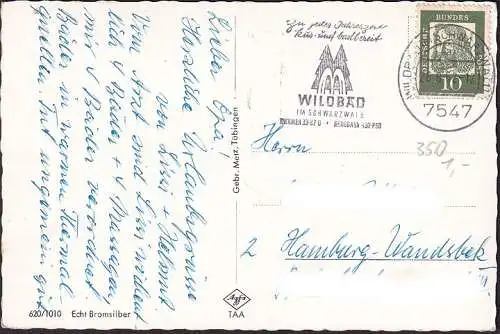 Lieber Opa!
Herzliche Urlaubsgrüsse
von Lissi + Helmut
Vom Arzt sind Lissi sieben
und 4 Bäder + 4 Massagen,
mir 7 Bäder verordnet
Bäder in warmen Thermal-
quellen. Tut ungemein gut
620/1010 Echt Bromsilber
Gebr. Metz, Tübingen
Agfa
TAA
Zu jeder Jahreszeit
kur- und badbereit
WILDBAD
IM SCHWARZWALD
BERGBAHN 430-750
7547
DEUTSCHE BUNDESPOST
10
350
1,-
Herrn
2 Hamburg-Wandsbek